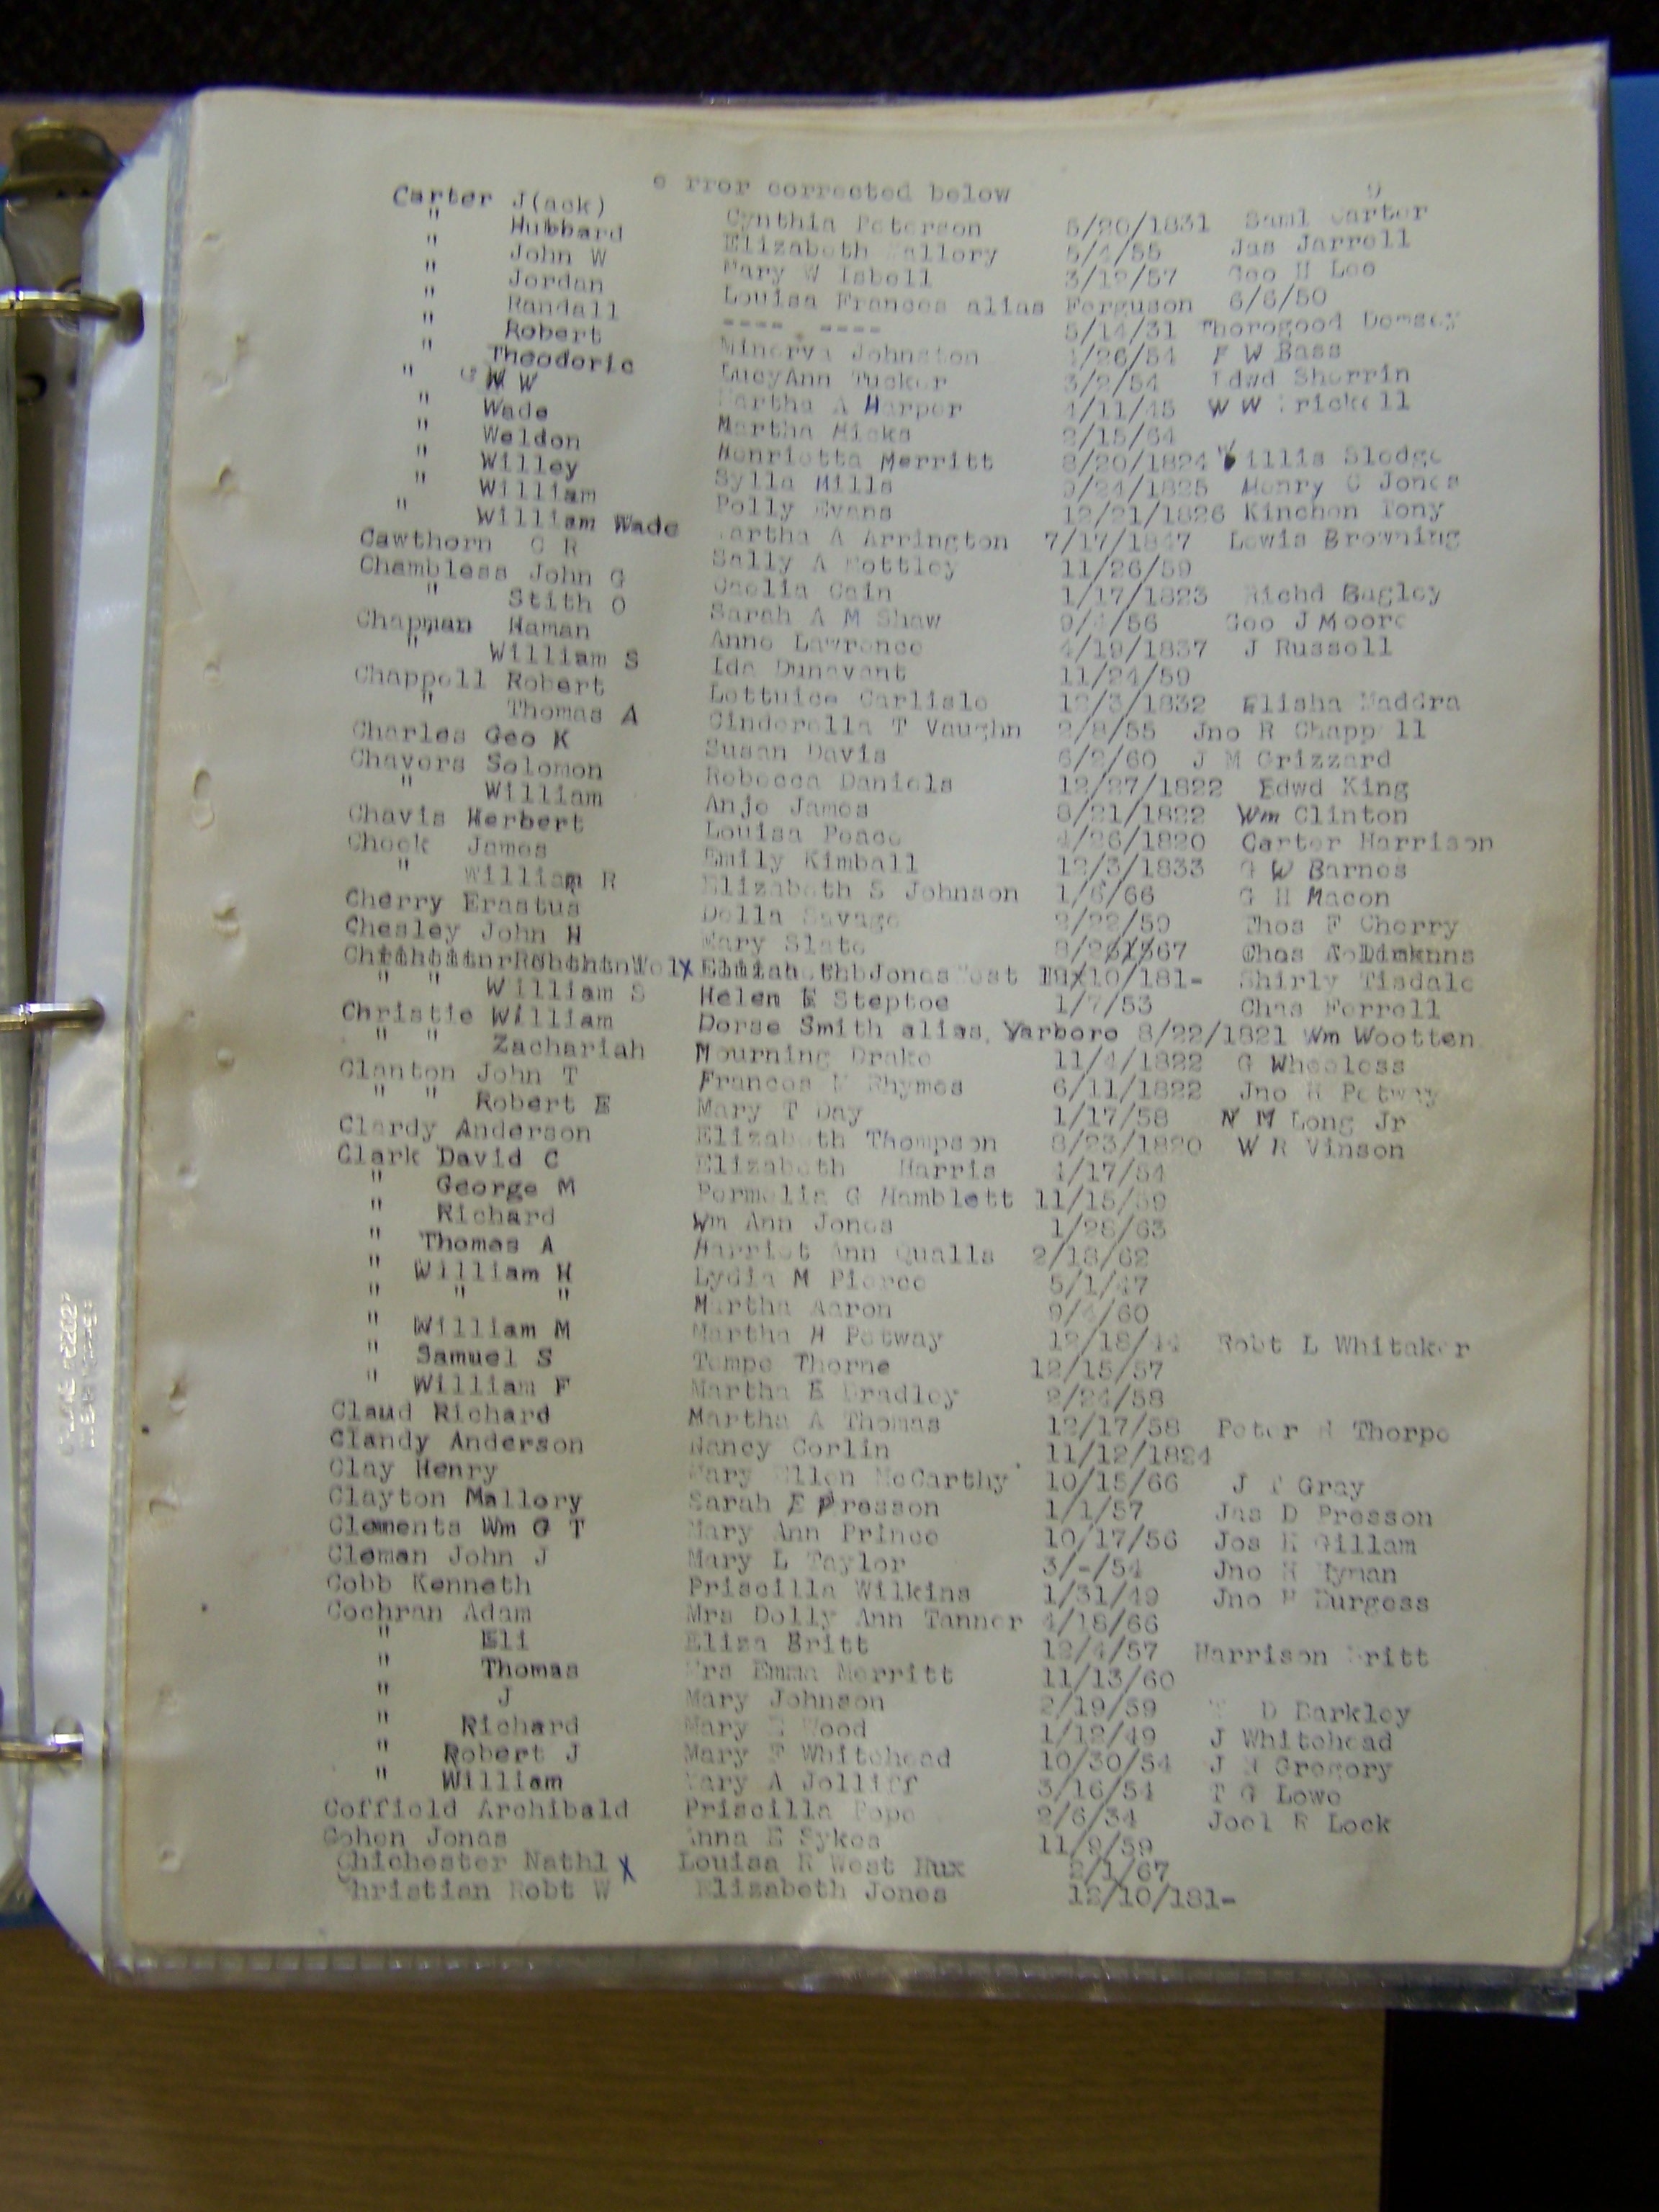 e rror corrected below 9
Carter J(ack) Cynthia Peterson 5/20/1831 Saml Carter
" Hubbard Elizabeth Mallory 5/4/55 Jas Jarrell
" John W Mary W Isbell 3/12/57 Geo H Lee
" Jordan Louisa Frances alias Ferguson 6/6/50
" Randall ---- ---- 5/14/31 Thorogood Demsey
" Robert Minerva Johnston 4/26/54 F W Bass
" Theodoric LucyAnn Tucker 3/2/54 Edwd Sherrin
" W W Martha A Harper 4/11/45 W W Brickell
" Wade Martha Hicks 2/15/64
" Weldon Henrietta Merritt 8/20/1824 Willis Sledge
" Willey Sylla Mills 9/24/1825 Henry C Jones
" William Polly Evans 12/21/1826 Kinchen Tony
" William Wade Martha A Arrington 7/17/1847 Lewis Browning
Cawthorn C R Sally A Nottley 11/26/59
Chambless John G Caelia Cain 1/17/1823 Richd Bagley
" Stith O Sarah A M Shaw 9/4/56 Geo J Moore
Chapman Haman Anne Lawrence 4/19/1837 J Russell
" William S Ida Dunavant 11/24/59
Chappell Robert Lettuice Carlisle 12/3/1832 Elisha Maddra
" Thomas A Cinderella T Vaughn 2/8/55 Jno R Chapp ll
Charles Geo K Susan Davis 6/2/60 J M Grizzard
Chavers Solomon Rebecca Daniels 12/27/1822 Edwd King
" William Anje James 8/21/1822 Wm Clinton
Chavis Herbert Louisa Peace 4/26/1820 Carter Harrison
Cheek James Emily Kimball 12/3/1833 G W Barnes
" William R Elizabeth S Johnson 1/6/66 G H Macon
Cherry Erastus Della Savage 2/22/59 Thos F Cherry
Chesley John H Mary Slate
" " William S Helen E Steptoe 1/7/53 Chas Ferrell
Christie William Dorse Smith alias, Yarboro 8/22/1821 Wm Wootten
" " Zachariah Mourning Drake 11/4/1822 G Wheeless
Clanton John T Frances M Rhymes 6/11/1822 Jno H Petway
" " Robert E Mary T Day 1/17/58 N M Long Jr
Clardy Anderson Elizabeth Thompson 8/23/1820 W R Vinson
Clark David C Elizabeth Harris 4/17/54
" George M Permelia G Hamblett 11/15/59
" Richard Wm Ann Jones 1/28/63
" Thomas A Harriet Ann Qualls 2/18/62
" William H Lydia M Pierce 5/1/47
" " " Martha Aaron 9/4/60
" William M Martha H Petway 12/18/44 Robt L Whitaker
" Samuel S Tempe Thorne 12/15/57
" William F Martha E Bradley 2/24/58
Claud Richard Martha A Thomas 12/17/58 Peter R Thorpe
Clandy Anderson Nancy Corlin 11/12/1824
Clay Henry Mary Ellen McCarthy 10/15/66 J T Gray
Clayton Mallory Sarah E Presson 1/1/57 Jas D Presson
Clements Wm G T Mary Ann Prince 10/17/56 Jos H Gillam
Cleman John J Mary L Taylor 3/-/54 Jno H Hyman
Cobb Kenneth Priscilla Wilkins 1/31/49 Jno H Burgess
Cochran Adam Mrs Dolly Ann Tanner 4/18/66
" Eli Eliza Britt 12/4/57 Harrison Britt
" Thomas Mrs Emma Merritt 11/13/60
" J Mary Johnson 2/19/59 D Barkley
" Richard Mary E Wood 1/12/49 J Whitehead
" Robert J Mary F Whitehead 10/30/54 J H Gregory
" William Mary A Jolliff 3/16/54 T G Lowe
Coffield Archibald Priscilla Pope 2/6/34 Joel R Lock
Cohen Jonas Anna E Sykes 11/9/59
Chichester Nathl x Louisa R West Hux 2/1/67
hristian Robt W Elisabeth Jones 12/10/181-